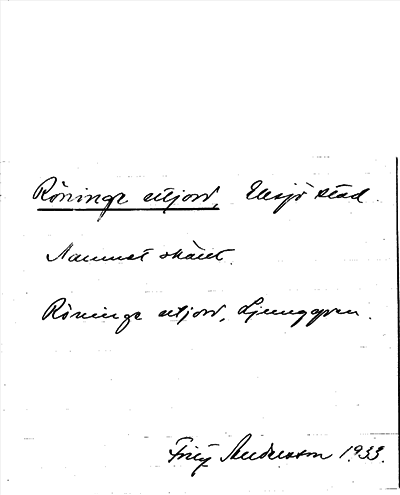 Röninge utjord, Eksjö stad.
Namnet okänt.
Röninge utjord, Ljunggren.
Fritz Anderson 1933.